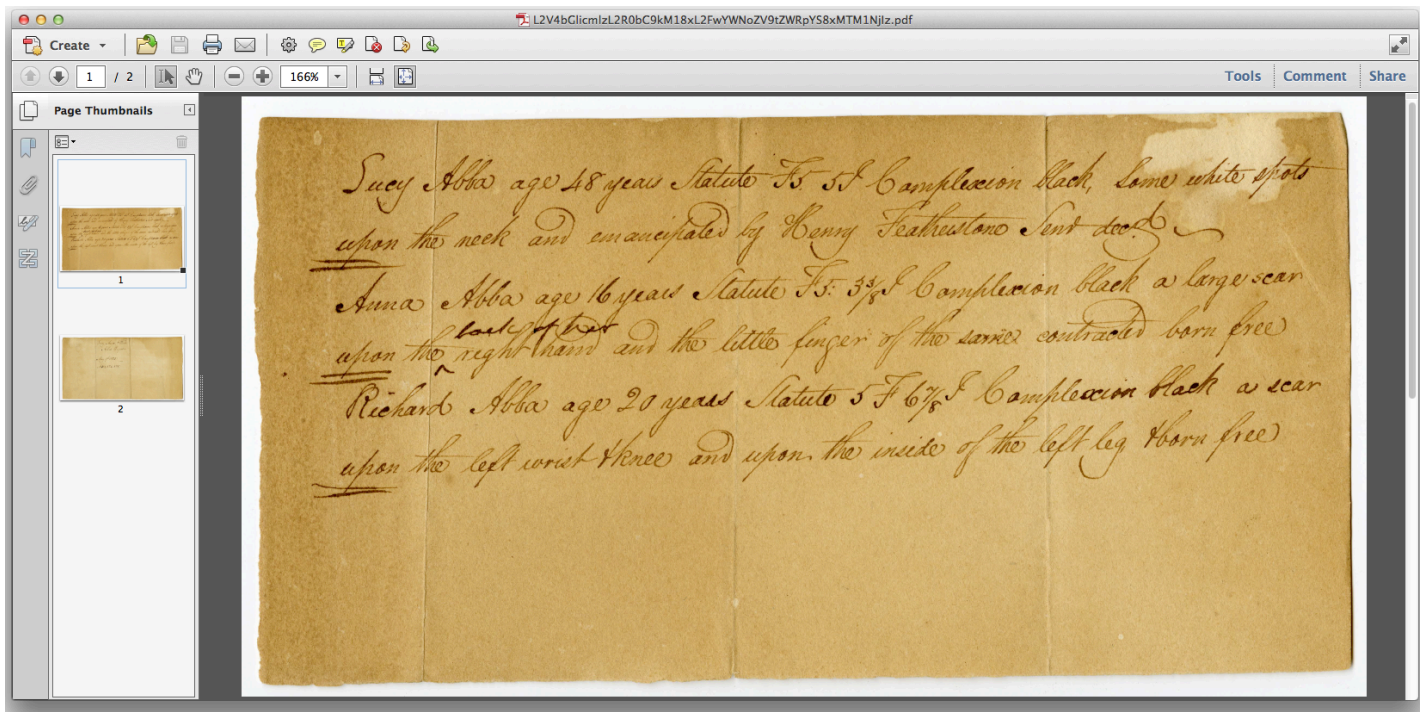 L2V4bGlicmlzL2R0bC9kM18xL2FwYWNoZV9tZWRpYS8xMTM1Njlz.pdf
Create
1 / 2 166% Tools Comment Share
Page Thumbnails
1
2
Lucy Abba age 48 years Statute F5. 5I Complexion black, Some white spots
upon the neck and emancipated by Henry Featherstone Senr decd.
Anna Abba age 16 years Statute F5: 3 3/8 I Complexion black a large scar
back of her
upon the right hand and the little finger of the same contracted born free
Richard Abba age 20 years Statute 5 F 6 7/8 I Complexion black a scar
upon the left wrist & knee and upon the inside of the left leg & born free